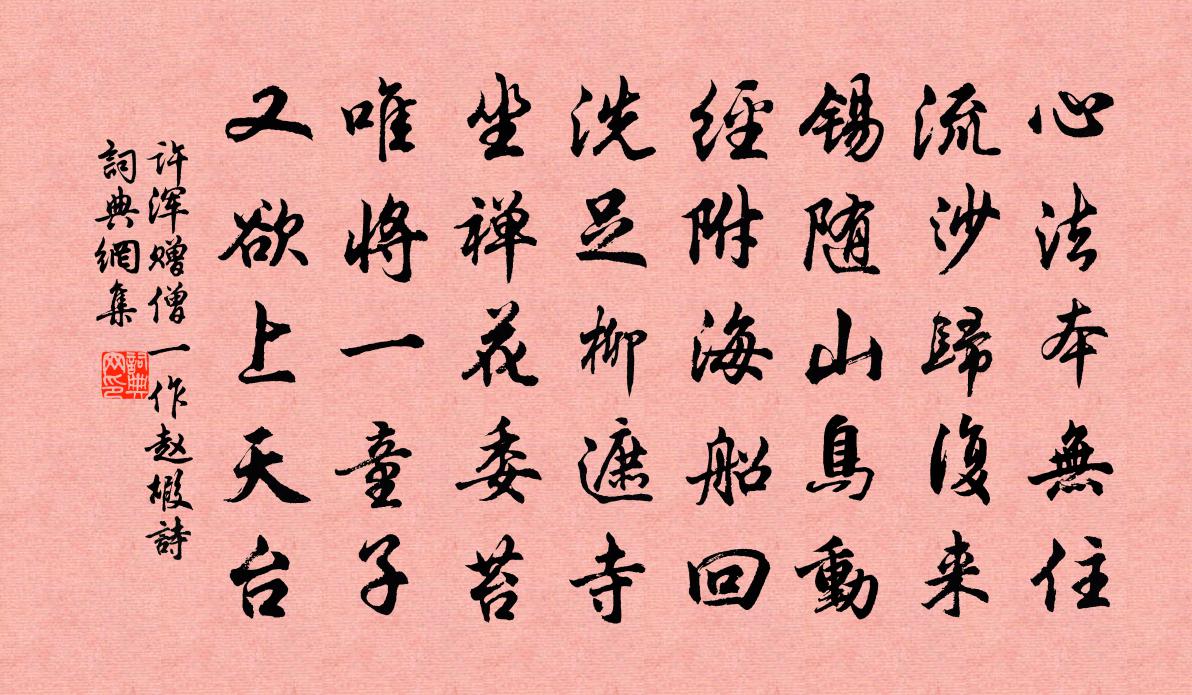 心法本無住
流沙歸復来
錫随山鳥動
經附海船回
洗足柳遮寺
坐禅花委苔
唯將一童子
又欲上天台
许浑赠僧一作赵嘏詩
詞典網集
詞典网印